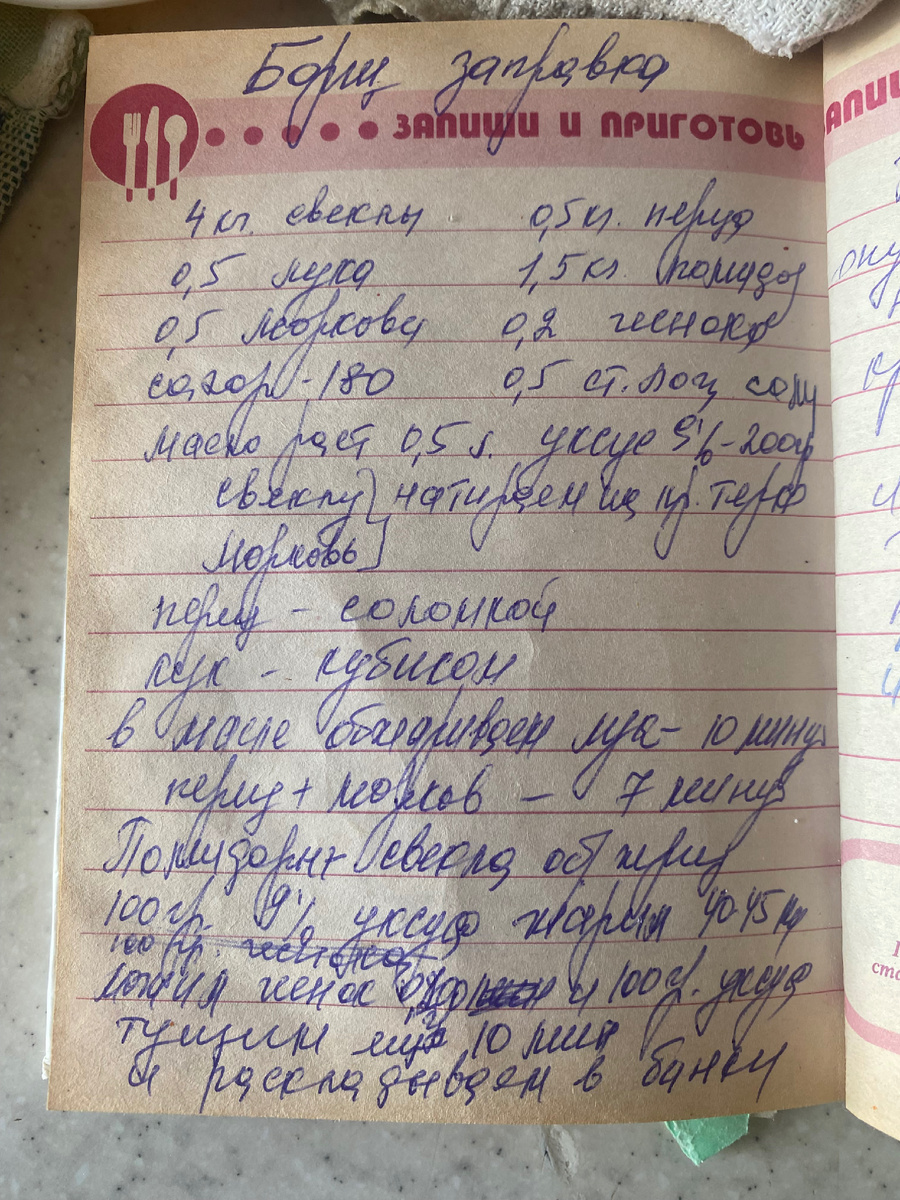 Борщ заправка
ЗАПИШИ И ПРИГОТОВЬ
4 кг. свеклы 0,5 кг. перца
0,5 лука 1,5 кг. помидор
0,5 моркови 0,2 чеснока
сахар - 180 0,5 ст. лож соли
масло раст 0,5 л. уксус 9% - 200гр
свеклу } натираем на кр. терке
морковь
перец - соломкой
лук - кубиком
в масле обжариваем лук - 10 минут
перец + морков - 7 минут
Помидоры + свекла
100 гр. 9% уксуса жарим 40-45 ми
100 гр. чеснока
ложим чеснок и 100 гр. уксуса
тушим ещё 10 мин
и раскладываем в банки